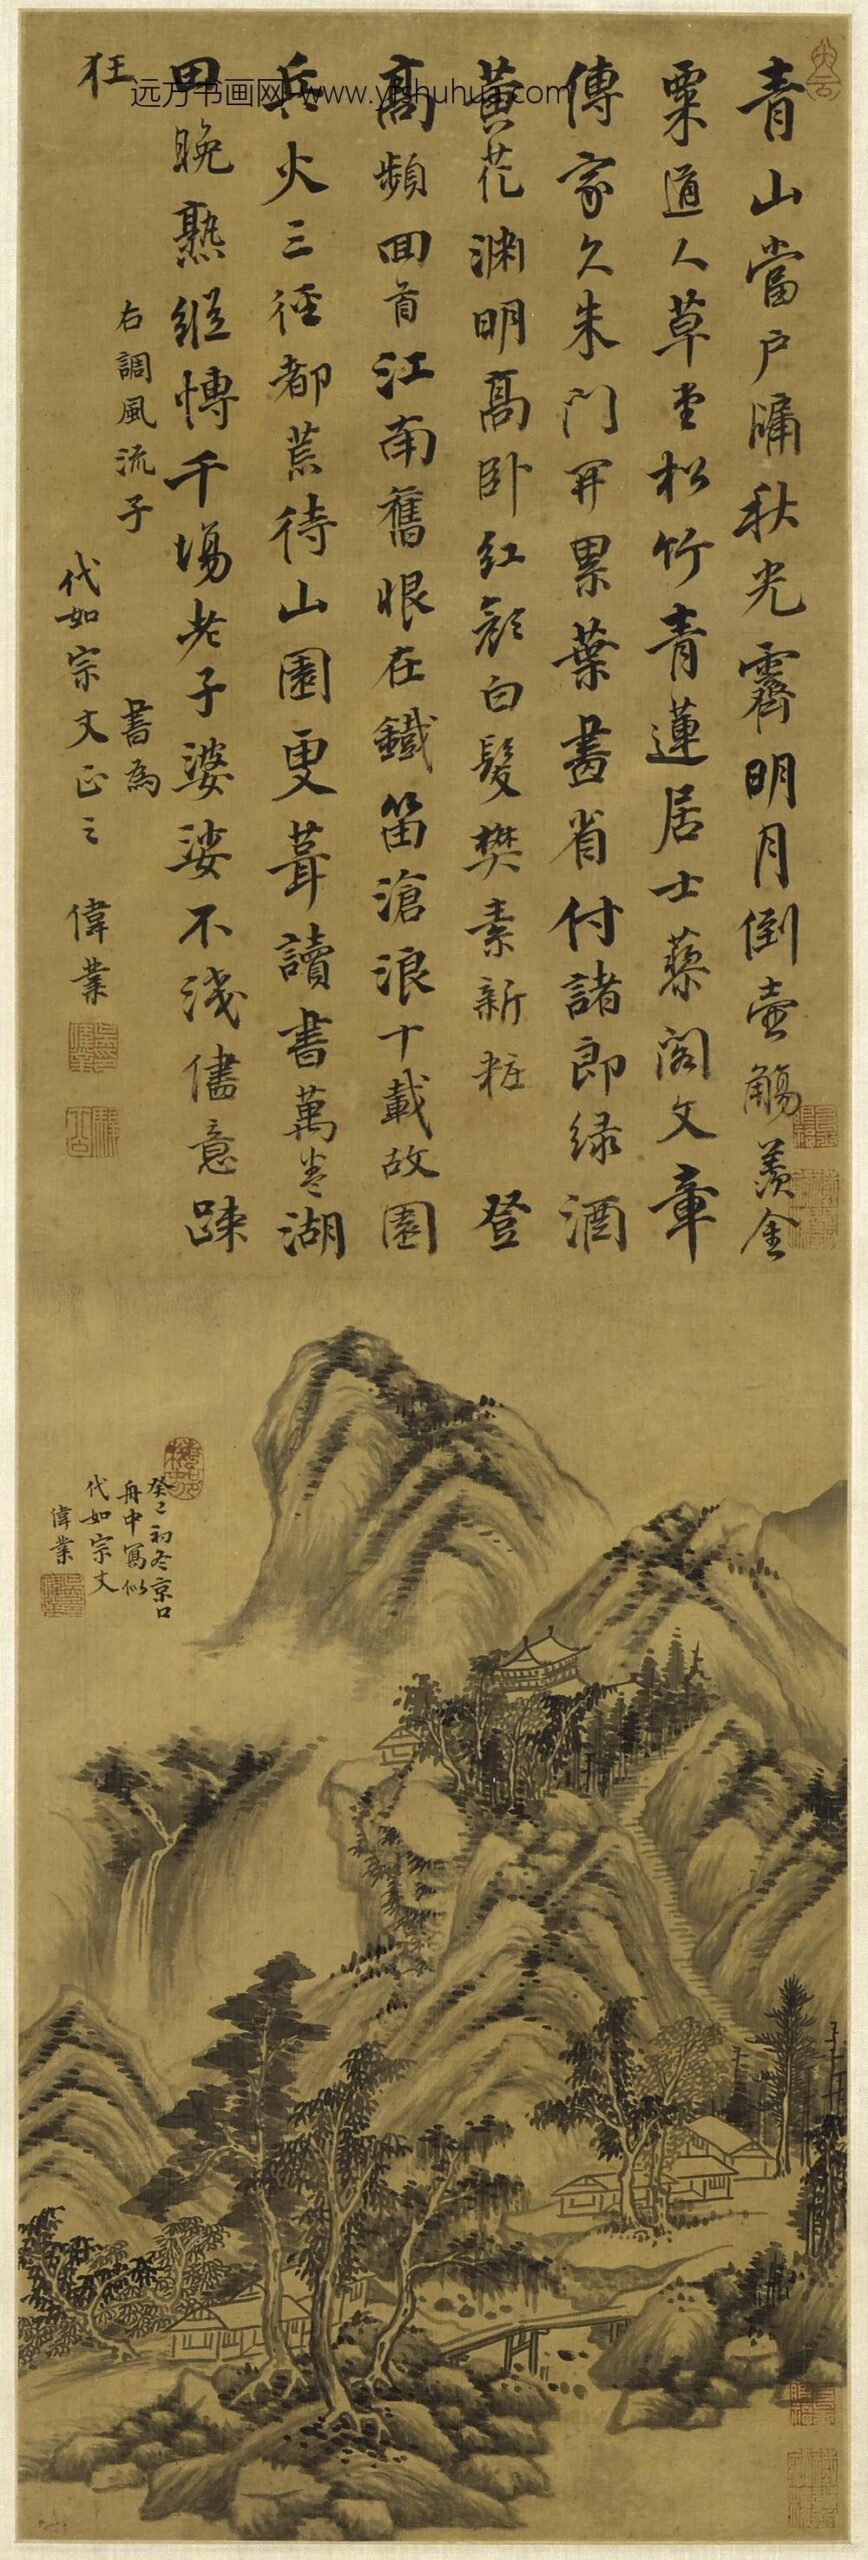 远方书画网 www.yfshuhua.com
青山當戶牖秋光霽明月倒壺觴羨金
粟道人草堂松竹青蓮居士藜閣文章
傳家久朱門開累葉畫省付諸郎綠酒
黃花淵明高臥紅顏白髮樊素新粧 登
高頻回首江南舊眼在鐵笛滄浪十載故園
兵火三徑都荒待山園更葺讀書萬卷湖
田晚熟縱博千場老子婆娑不淺儘意踈
狂
右調風流子 書為
代如宗丈正之 偉業
癸巳初冬京口
舟中寫似
代如宗丈
偉業